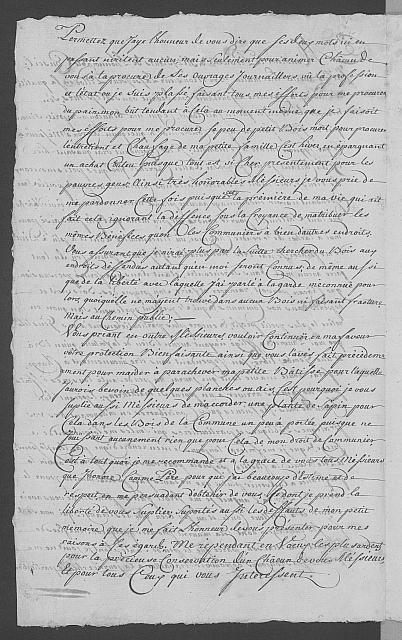 Permettez que j'aye l'honneur de vous dire que ses deux mots ni en
pessant n'irritent aucun, mais seulement pour animer Chacun de
vous à la procure de ses ouvrages Journailliers, vû la profession
et l'état ou je suis plassé faisant tous mes efforts pour me procurer
du pain mon but tendant à cela au moment même que je faisoit
mes efforts pour me procurer ce peu de petit Bois mort pour procurer
l'entretient et Chaufage de ma petite famille cest hiver, en épargnant
un achat lorsque tout est si Cher presentement pour les
pauvres gens Ainsi trés honorables Messieurs je vous prie de
me pardonner Cette fois puisque c'est la premiere de ma vie qui ait
fait cela ignorant la deffence sous la Croyance de m'atribuer les
mêmes Benefices qu'ont les Communiers à bien d'autres endroits.
Vous assurant que je n'irai plus par la suitte chercher du Bois aux
endroits deffendus autant qu'en moi seront Connus, de même aussi
que de la liberté avec laquelle j'ai parlé à la garde méconnue pour
lors, quoiqu'elle ne m'ayent trouvé dans aucun Bois ni faisant fracture
Mais au Chemin public; —
Vous priant en outre Messieurs vouloir Continuer en ma faveur
vôtre protection Bienfaisante ainsi que vous l'avés fait précédem
ment pour m'aider à parachever ma petite Bâtisse pour laquelle
j'aurois besoin de quelques planches ou ais, C'est pourquoi je vous
suplie aussi Messieurs de m'accorder une plante de sapin pour
Cela dans les Bois de la Commune un peu à portée, puisque ne
jouissant aucunement rien que pour Cela de mon droit de Communier
Ceci à tout quoi je me recommande et à la grace de vous tous Messieurs
que j'honore Comme Pere pour que j'ai beaucoup d'estime et de
respect en me persuadant d'obtenir de vous le dont je prend la
liberté de vous suplier suportés aussi les deffauts de mon petit
mémoire que je me fait l'honneur de vous presenter pour mes
raisons à Ces égards. Me rependant en Vœux les plus ardent
pour la précieuse Conservation d'un Chacun de vous Messieurs
Et pour tous Ceux qui vous Interessent.